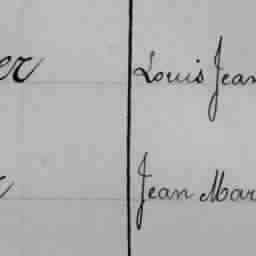 er Louis Jean
Jean Mar